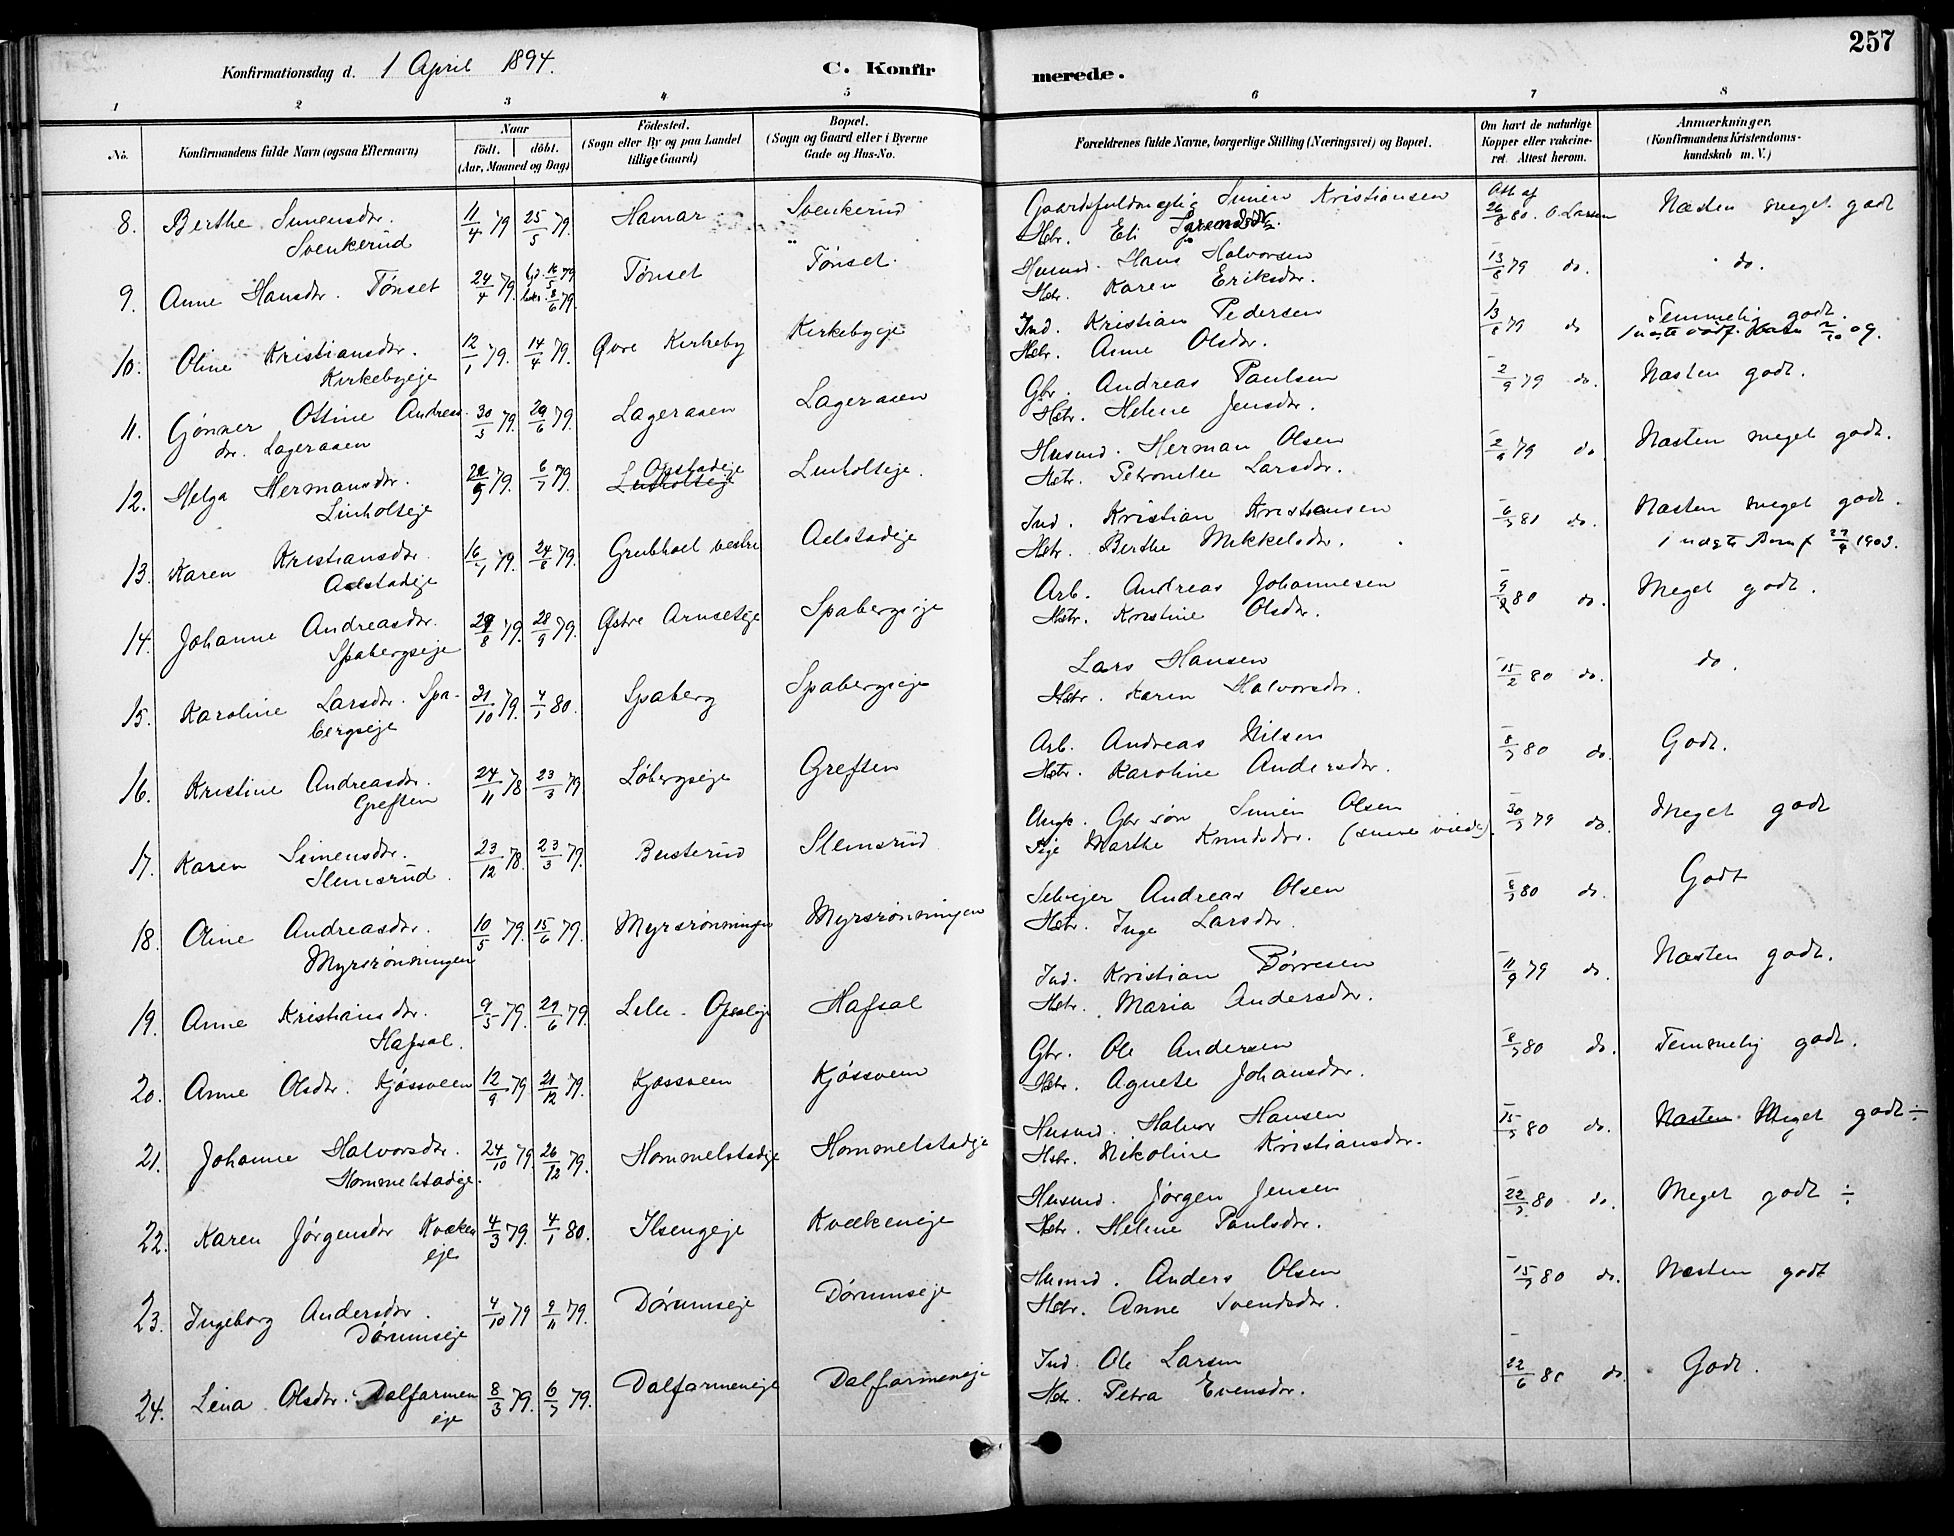 257
Konfirmationsdag d. 1 April 1894. C. Konfirmerede.
1 2 3 4 5 6 7 8
No. Konfirmandens fulde Navn (ogsaa Efternavn) Naar født. døbt. (Aar, Maaned og Dag) Fødested. (Sogn eller By og paa Landet tillige Gaard) Bopæl. (Sogn og Gaard eller i Byerne Gade og Hus-No. Forældrenes fulde Navne, borgerlige Stilling (Næringsvei) og Bopæl. Om havt de naturlige Kopper eller vakcineret. Attest herom. Anmærkninger, (Konfirmandens Kristendomskundskab m. V.)
8. Berthe Simensdr. 11/4 79 25/5 79. Hamar Svenkerud Gaardsfuldmægtig Simen Kristiansen Att. af 26/8 80. O. Larsen Næsten meget godt
Svenkerud Hstr. Eli
9. Anne Hansdr. Tønset 24/4 79. hjd. 16/5 79 Tønset Tønset. Husmd. Hans Halvorsen 13/6 79 do. do.
8/6 79. Hstr. Karen Eriksdr.
10. Oline Kristiansdr. 12/1 79. 14/4 79. Øvre Kirkeby Kirkebyeje Ind. Kristian Pedersen 13/6 79 do Temmelig godt.
Kirkebyeje Hstr. Anne Olsdr.
11. Gønner Ottine Andreas- 30/3 79. 29/6 79. Lageraasen Lageraasen Gbr. Andreas Paulsen 2/9 79 do. Næsten godt.
dr. Lageraasen Hstr. Helene Jensdr.
12. Helga Hermansdr. 79. 6/7 79. Opstadeje Linholteje Linholteje. Husmd. Herman Olsen 2/9 79 do. Næsten meget godt.
Linholteje Hstr. Petronelle Larsdr.
13. Karen Kristiansdr. 16/7 79. 24/8 79. Grubhoel vestre Aelstadeje Ind. Kristian Kristiansen 6/7 80 do. Næsten meget godt.
Aelstadeje Hstr. Berthe Mikkelsdr. 1903.
14. Johanne Andreasdr. 29/8 79. 28/9 79. Østre Arnseteje Spabergseje Arb. Andreas Johannesen 80 do. Meget godt.
Spabergseje Hstr. Kristine Olsdr.
15. Karoline Larsdr. Spa- 21/10 79. 4/1 80. Spaberg Spabergseje Lars Hansen 15/2 80 do. do.
bergseje Hstr. Karen Halvorsdr.
16. Kristine Andreasdr. 24/11 78 23/3 79 Løbergseje Greften Arb. Andreas Nilsen 8/7 80 do. Godt.
Greften Hstr. Karoline Andersdr.
17. Karen Simensdr. 23/12 78. 23/3 79. Busterud Slemsrud Ungk. Gbr søn Simen Olsen 30/7 79 do. Meget godt
Slemsrud. Pige Marthe Knudsdr.
18. Oline Andreasdr. 10/5 79. 15/6 79. Myrsrønningen Myrsrønningen Selvejer Andreas Olsen 8/7 80 do. Godt
Myrsrønningen Hstr. Inge Larsdr.
19. Anne Kristiansdr. 9/5 79. 29/6 79. Lille- Opsaleje Hafsal Ind. Kristian Børresen 11/9 79 do. Næsten godt.
Hafsal. Hstr. Maria Andersdr.
20. Anne Olsdr. Kjøssveen 12/9 79 21/12 79. Kjøssveen Kjøssveen Gbr. Ole Andersen 8/7 80 do. Temmelig godt.
Hstr. Agnete Johansdr.
21. Johanne Halvorsdr. 24/10 79. 26/12 79. Hommelstadeje Hommelstadeje Husmd. Halvor Hansen 15/7 80 do. Næsten Meget godt ÷
Hommelstadeje. Hstr. Nikoline Kristiansdr.
22. Karen Jørgensdr Kvæken 4/3 79. 4/1 80. Ilsengeje Kvækeneje Husmd. Jørgen Jensen 22/7 80 do. Meget godt ÷
eje Hstr. Helene Paulsdr.
23. Ingeborg Andersdr. 4/10 79 9/11 79. Dørumseje Dørumseje Husmd. Anders Olsen 15/7 80 do. Næsten godt
Dørumseje Hstr. Anne Svendsdr.
24. Lina Olsdr. Dalfarmen 8/3 79. 6/7 79. Dalfarmeneje Dalfarmeneje Ind. Ole Larsen 22/6 80 do. Godt.
eje Hstr. Petra Evensdr.